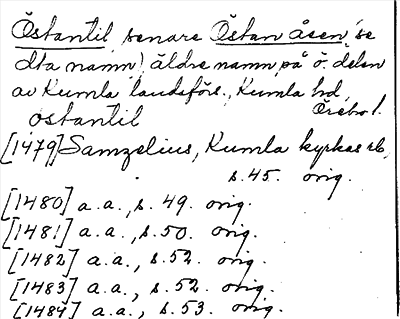 Östantil, senare Östan åsen (se
dta namn) äldre namn på ö. delen
av Kumla landsförs., Kumla hd,
Örebro l.
ostantil
[1479] Samzelius, Kumla kyrkas rb,
s. 45. orig.
[1480] a.a., s. 49. orig.
[1481] a.a., s. 50. orig.
[1482] a.a., s. 52. orig.
[1483] a.a., s. 52. orig.
[1484] a.a., s. 53. orig.